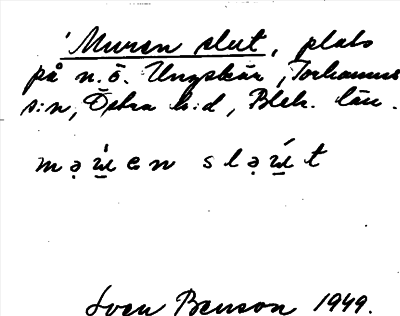 'Muren slut, plats
på n.ö. Ungskär, Torhamns
s:n, Östra h:d, Blek. län.
mạu̇en slạu̇t
Sven Benson 1949.